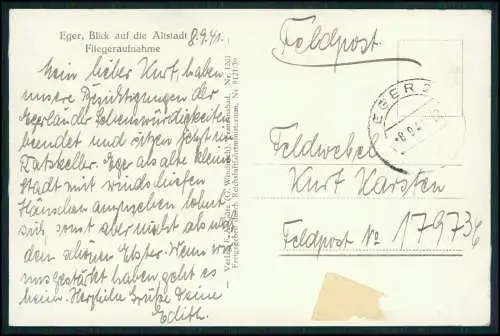 Eger, Blick auf die Altstadt
Fliegeraufnahme
8.9.41.
Mein lieber Kurt, haben
unsere Besichtigungen der
Egerländer Sehenswürdigkeiten
beendet und sitzen jetzt im
Ratskeller. Eger als alte kleine
Stadt mit windschiefen
Häuschen anzusehen lohnt
sich, sonst aber nicht als
den schönen Elster. Wenn wir
uns gestärkt haben geht es
heim. Herzliche Grüße Deine
Edith.
Feldpost.
EGER 2
8.9.41
Feldwebel
Kurt Karsten
Feldpost No 17973